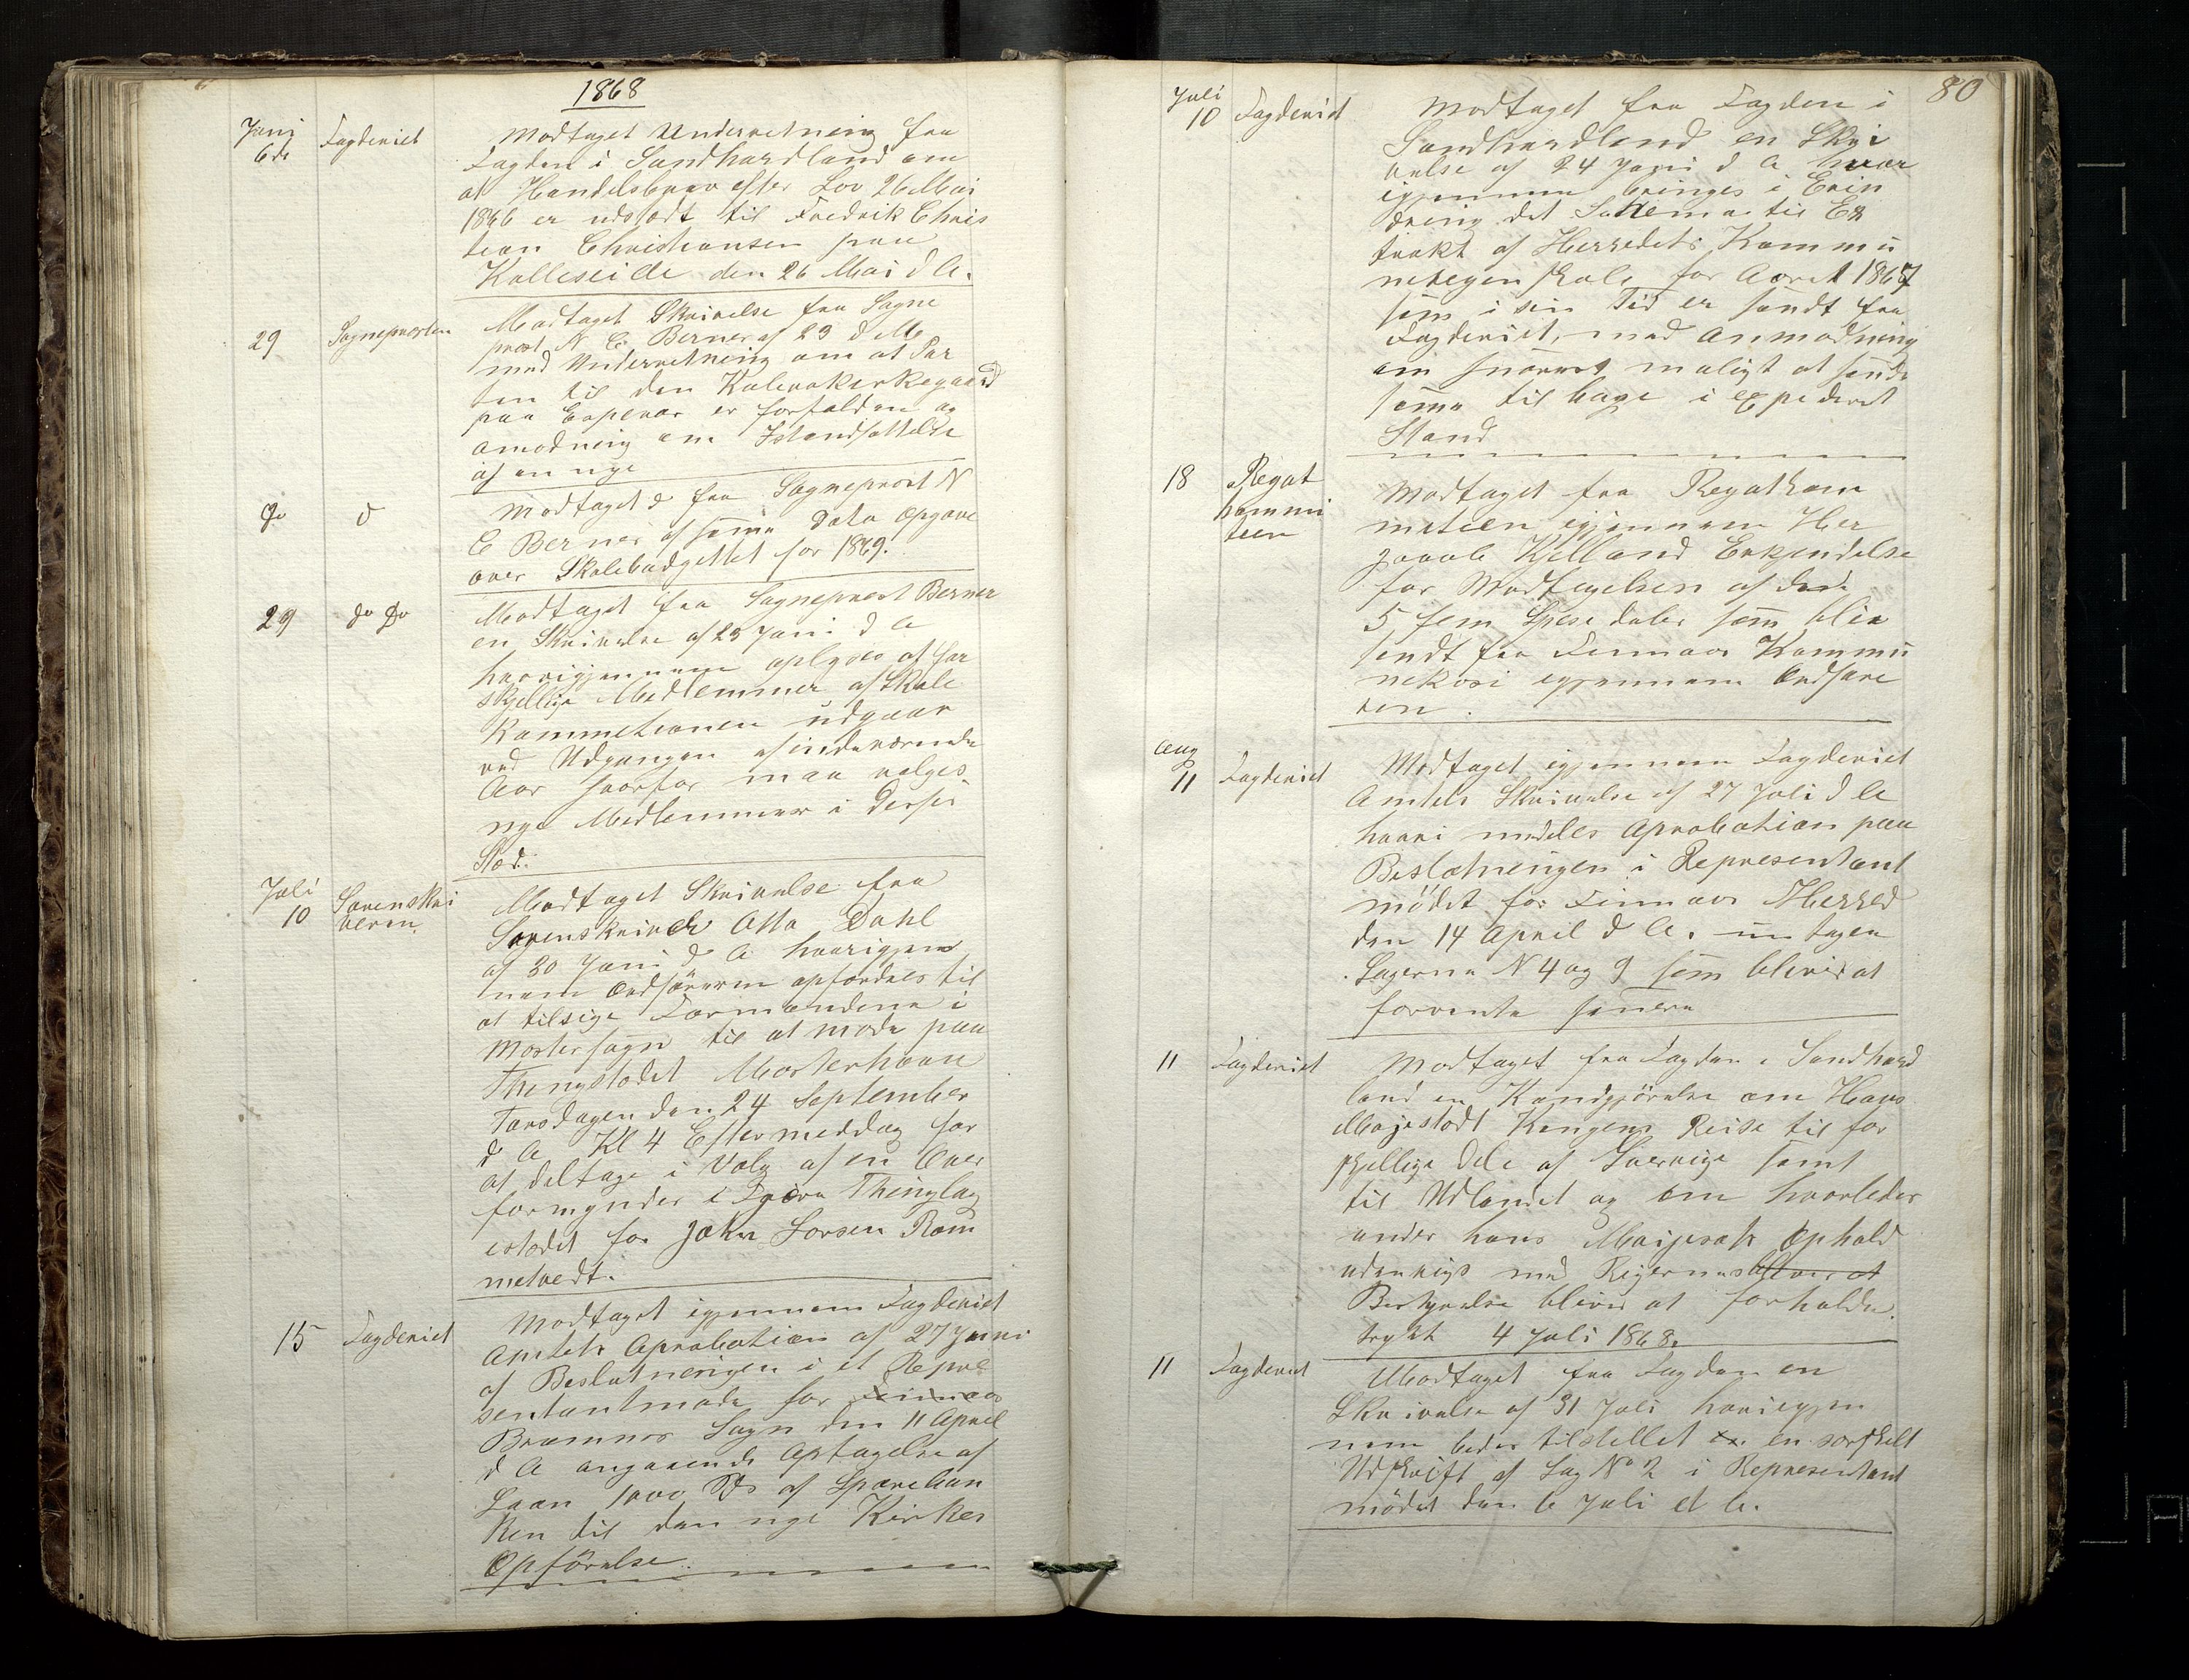 1868
Juni
6de
Fogderiet
Modtaget Underretning fra
Fogden i Sundhordland om
at Handelsbrev efter Lov 26 Mai
1866 er udstædt til Fredrik Chris
tian Christiansen paa
Kalleseide den 26 Mai d A.
29
Sognepresten
Modtaget Skrivelse fra Sogne
prest N C Berner af 23 d M
med Underretning om at Por
ten til den Kolerakirkegaard
paa Espevær er forfalden og
amodning om Istandsættelse
af en nye
do
d
Modtaget d fra Sogneprest N
C Berner af samme Dato Opgave
over Skolebudgettet for 1869.
29
do do
Modtaget fra Sogneprest Berner
en Skrivelse af 23 Juni d A
hvorigjennem oplyses at for
skjellige Medlemmer af Skole
Kommetionen udgaar
ved Udgangen af indeværende
Aar hvorfor maa vælges
nye Medlemmer i Derses
Sted.
Juli
10
Sorenskri
veren.
Modtaget Skrivelse fra
Sorenskriver Otto Dahl
af 30 Juni d A hvorigjen
nem Ordføreren opfordres til
at tilsige Formændene i
Mostersogn til at møde paa
Thingstedet Mosterhavn
Torsdagen den 24 September
d A Kl 4 Eftermeddag for
at deltage i Valg af en Over
formynder i Fjære Thinglag
istedet for John Larsen Rom
metvedt.
15
Fogderiet
Modtaget igjennem Fogderiet
Amtets Aprobation af 27 Juni
af Beslutningen i et Repre
sentantmøde for Finnaas
Bremnes Sogn den 11 April
d A angaaende Optagelse af
Laan 1000 Spd af Spareban
ken til den nye Kirkes
Opförelse.
80
Juli
10
Fogderiet
Modtaget fra Fogden i
Sundhordland en Skri
velse af 24 Juni d A hvor
igjennem bringes i Erin
dring det Skema til Ex
trakt af Herredets Kommu
neregenskab for Aaret 1867
som i sin Tid er sendt fra
Fogderiet, med Anmodning
om snarest muligt at sende
samme til bage i expederet
Stand
18
Regat
kommi
teen
Modtaget fra Regatkom
meteen igjennem Her
Jacob Kjelland Erkjendelse
for Modtagelsen af den
5 fem Spesidaler som blev
sendt fra Finnaas Kommu
nekasse igjennem Ordføre
ren.
Aug
11
Fogderiet
Modtaget igjennem Fogderiet
Amtets Skrivelse af 27 Juli d A
hvori meddeles Aprobation paa
Beslutningen i Representant
mödet for Finnaas Herred
den 14 April d A. untagen
Sagerne N 4 og 9 som bliver at
forvente senere
11
Fogderiet
Modtaget fra Fogden i Sundhord
land en Kundgjörelse om Hans
Majestæt Kongens Reise til for
skjellige Dele af Sverrige samt
til Udlandet og om hvorledes
under hans Majesæts Ophold
udenrigs med Regjernes bliver at
Bestyrelse bliver at forholde.
trykt 4 Juli 1868.
11
Fogderiet
Modtaget fra Fogden en
Skrivelse af 31 Juli hvorigjen
nem bedes tilstellet en særskilt
Udskrift af Sag No 2 i Representant
mödet den 6 Juli d A.